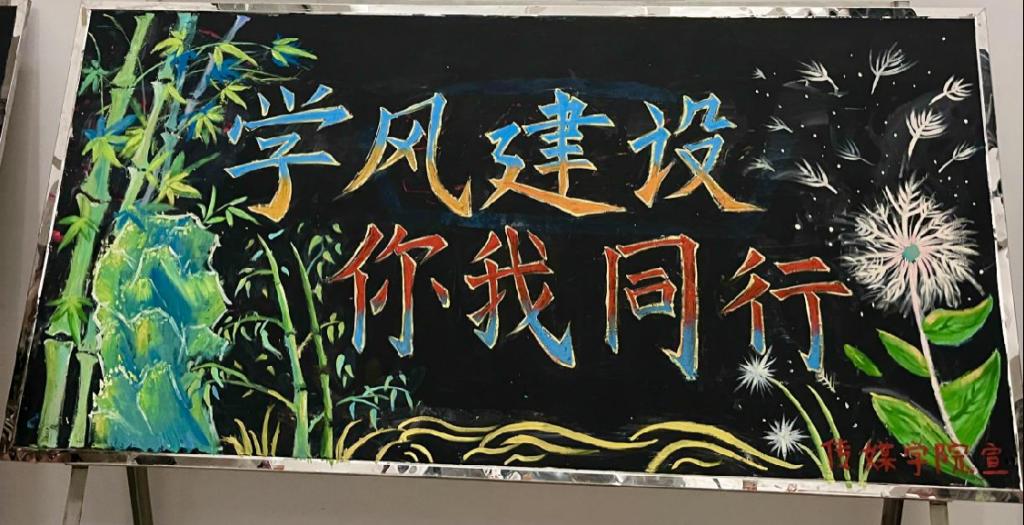 学风建设
你我同行
传媒学院宣